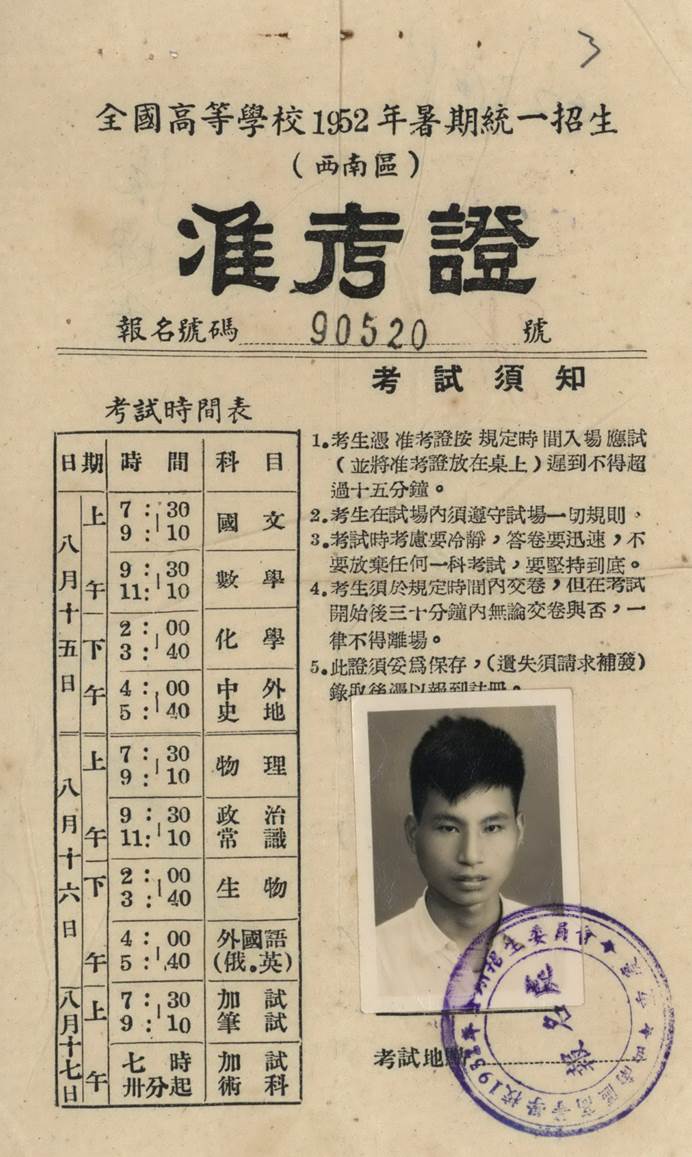 3
全國高等學校1952年暑期統一招生
(西南區)
准考證
報名號碼 90520 號
考試須知
考試時間表
日期 時間 科目
八月十五日 上午 7:30-9:10 國文
9:30-11:10 數學
下午 2:00-3:40 化學
4:00-5:40 中外史地
八月十六日 上午 7:30-9:10 物理
9:30-11:10 政治常識
下午 2:00-3:40 生物
4:00-5:40 外國語(俄.英)
八月十七日 上午 7:30-9:10 加試筆試
七時卅分起 加試術科
1.考生憑准考證按規定時間入場應試
(並將准考證放在桌上)遲到不得超
過十五分鐘。
2.考生在試場內須遵守試場一切規則,
3.考試時考慮要冷靜,答卷要迅速,不
要放棄任何一科考試,要堅持到底。
4.考生須於規定時間內交卷,但在考試
開始後三十分鐘內無論交卷與否,一
律不得離場。
5.此證須妥爲保存,(遺失須請求補發)
錄取後憑以報到註冊。
考試地點